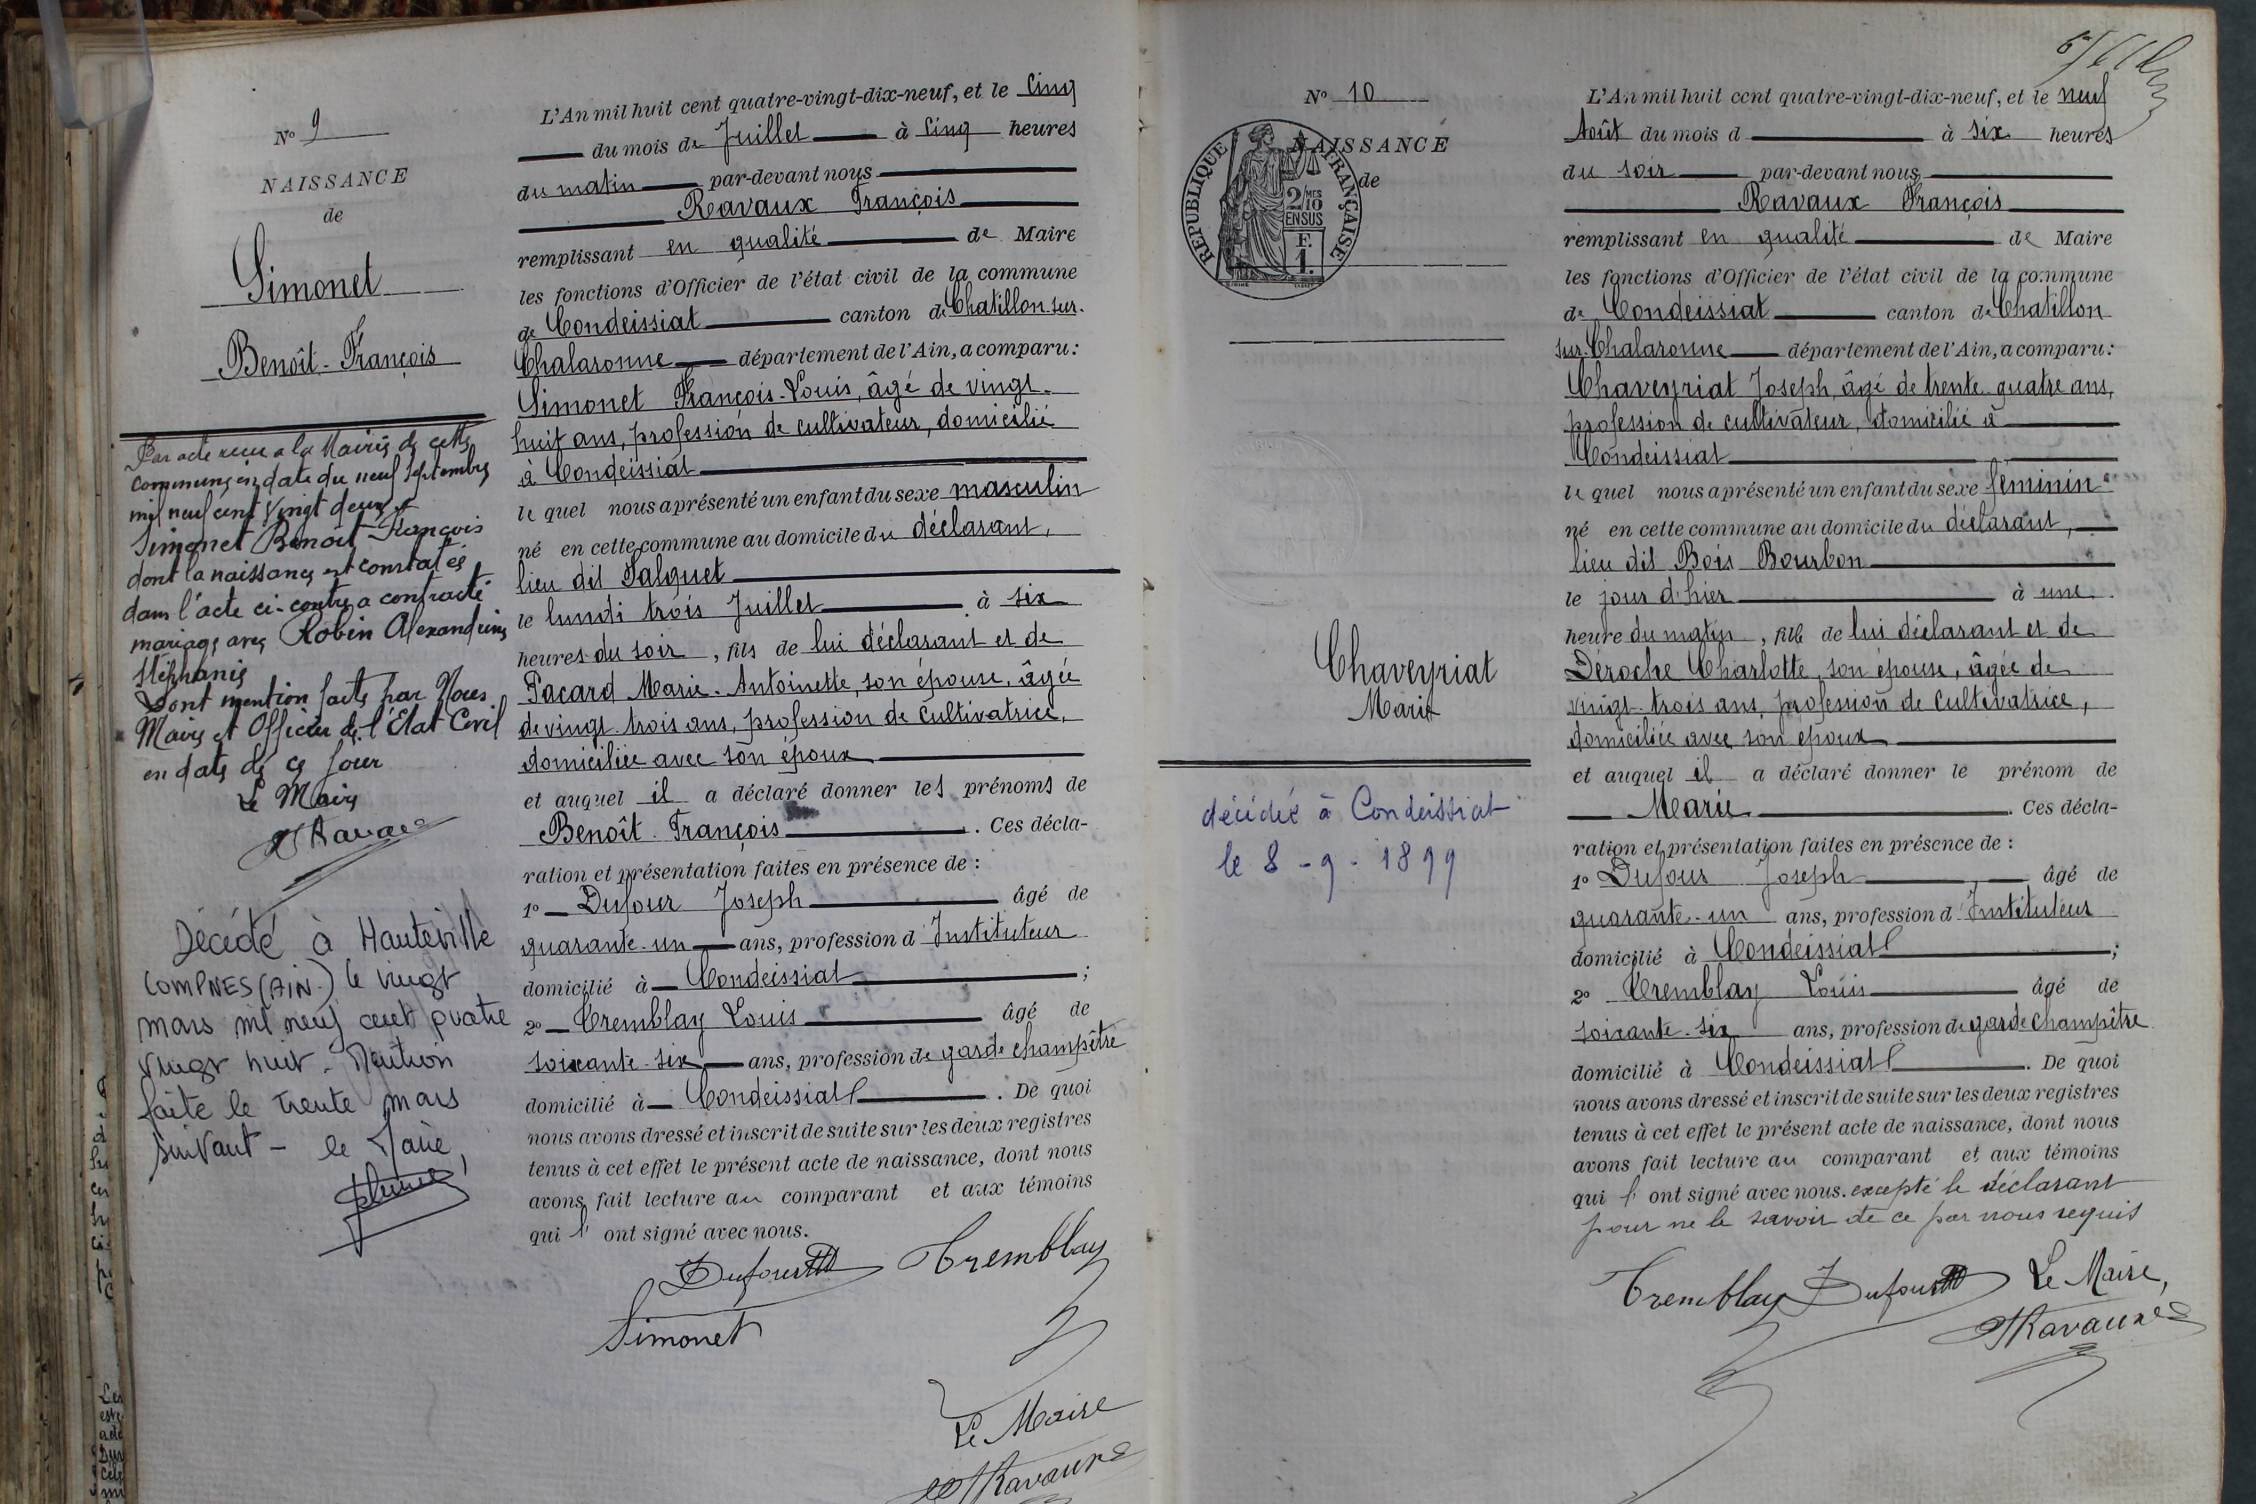 N° 9
NAISSANCE
de
Simonet
Benoît-François
Par acte reçu a la Mairie de cette
commune, en date du neuf septembre
mil neuf cent vingt deux
Simonet Benoit François
dont la naissance est constatée
dans l'acte ci-contre a contracté
mariage avec Robin Alexandrine
Stéphanie
Dont mention faite par Nous
Maire et Officier de l'Etat Civil
en date de ce jour
Le Maire
Ravaux
Décédé à Hauteville
LOMPNES (AIN) le vingt
mars mil neuf cent quatre
vingt huit. Mention
faite le trente mars
suivant - le Maire,
L'An mil huit cent quatre-vingt-dix-neuf, et le cinq
du mois de Juillet à cinq heures
du matin par-devant nous
Ravaux François
remplissant en qualité de Maire
les fonctions d'Officier de l'état civil de la commune
de Condeissiat canton de Chatillon-sur-
Chalaronne département de l'Ain, a comparu :
Simonet François-Louis, âgé de vingt-
huit ans, profession de cultivateur, domicilié
à Condeissiat
le quel nous a présenté un enfant du sexe masculin
né en cette commune au domicile du déclarant,
lieu dit
le lundi trois Juillet à six
heures du soir, fils de lui déclarant et de
Pacard Marie-Antoinette, son épouse, âgée
de vingt-trois ans, profession de cultivatrice,
domiciliée avec son époux
et auquel il a déclaré donner les prénoms de
Benoît-François. Ces décla-
ration et présentation faites en présence de :
1° Dufour Joseph âgé de
quarante-un ans, profession d'Instituteur
domicilié à Condeissiat ;
2° Tremblay Louis âgé de
soixante-six ans, profession de garde champêtre
domicilié à Condeissiat. De quoi
nous avons dressé et inscrit de suite sur les deux registres
tenus à cet effet le présent acte de naissance, dont nous
avons fait lecture au comparant et aux témoins
qui l' ont signé avec nous.
Dufour Tremblay
Simonet
Le Maire
Ravaux
N° 10
NAISSANCE
de
REPUBLIQUE FRANÇAISE
2/10
MES
EN SUS
F.
1.
Chaveyriat
Marie
décédée à Condeissiat
le 8-9-1899
L'An mil huit cent quatre-vingt-dix-neuf, et le neuf
Août du mois d à six heures
du soir par-devant nous
Ravaux François
remplissant en qualité de Maire
les fonctions d'Officier de l'état civil de la commune
de Condeissiat canton de Chatillon
sur-Chalaronne département de l'Ain, a comparu :
Chaveyriat Joseph, âgé de trente-quatre ans,
profession de cultivateur, domicilié à
Condeissiat
le quel nous a présenté un enfant du sexe féminin
né en cette commune au domicile du déclarant,
lieu dit Bois Bourbon
le jour d'hier à une
heure du matin, fille de lui déclarant et de
Déroche Charlotte, son épouse, âgée de
vingt-trois ans, profession de cultivatrice,
domiciliée avec son époux
et auquel il a déclaré donner le prénom de
Marie. Ces décla-
ration et présentation faites en présence de :
1° Dufour Joseph âgé de
quarante-un ans, profession d'Instituteur
domicilié à Condeissiat ;
2° Tremblay Louis âgé de
soixante-six ans, profession de garde champêtre
domicilié à Condeissiat. De quoi
nous avons dressé et inscrit de suite sur les deux registres
tenus à cet effet le présent acte de naissance, dont nous
avons fait lecture au comparant et aux témoins
qui l' ont signé avec nous. excepté le déclarant
pour ne le savoir de ce par nous requis
Tremblay Dufour Le Maire,
Ravaux